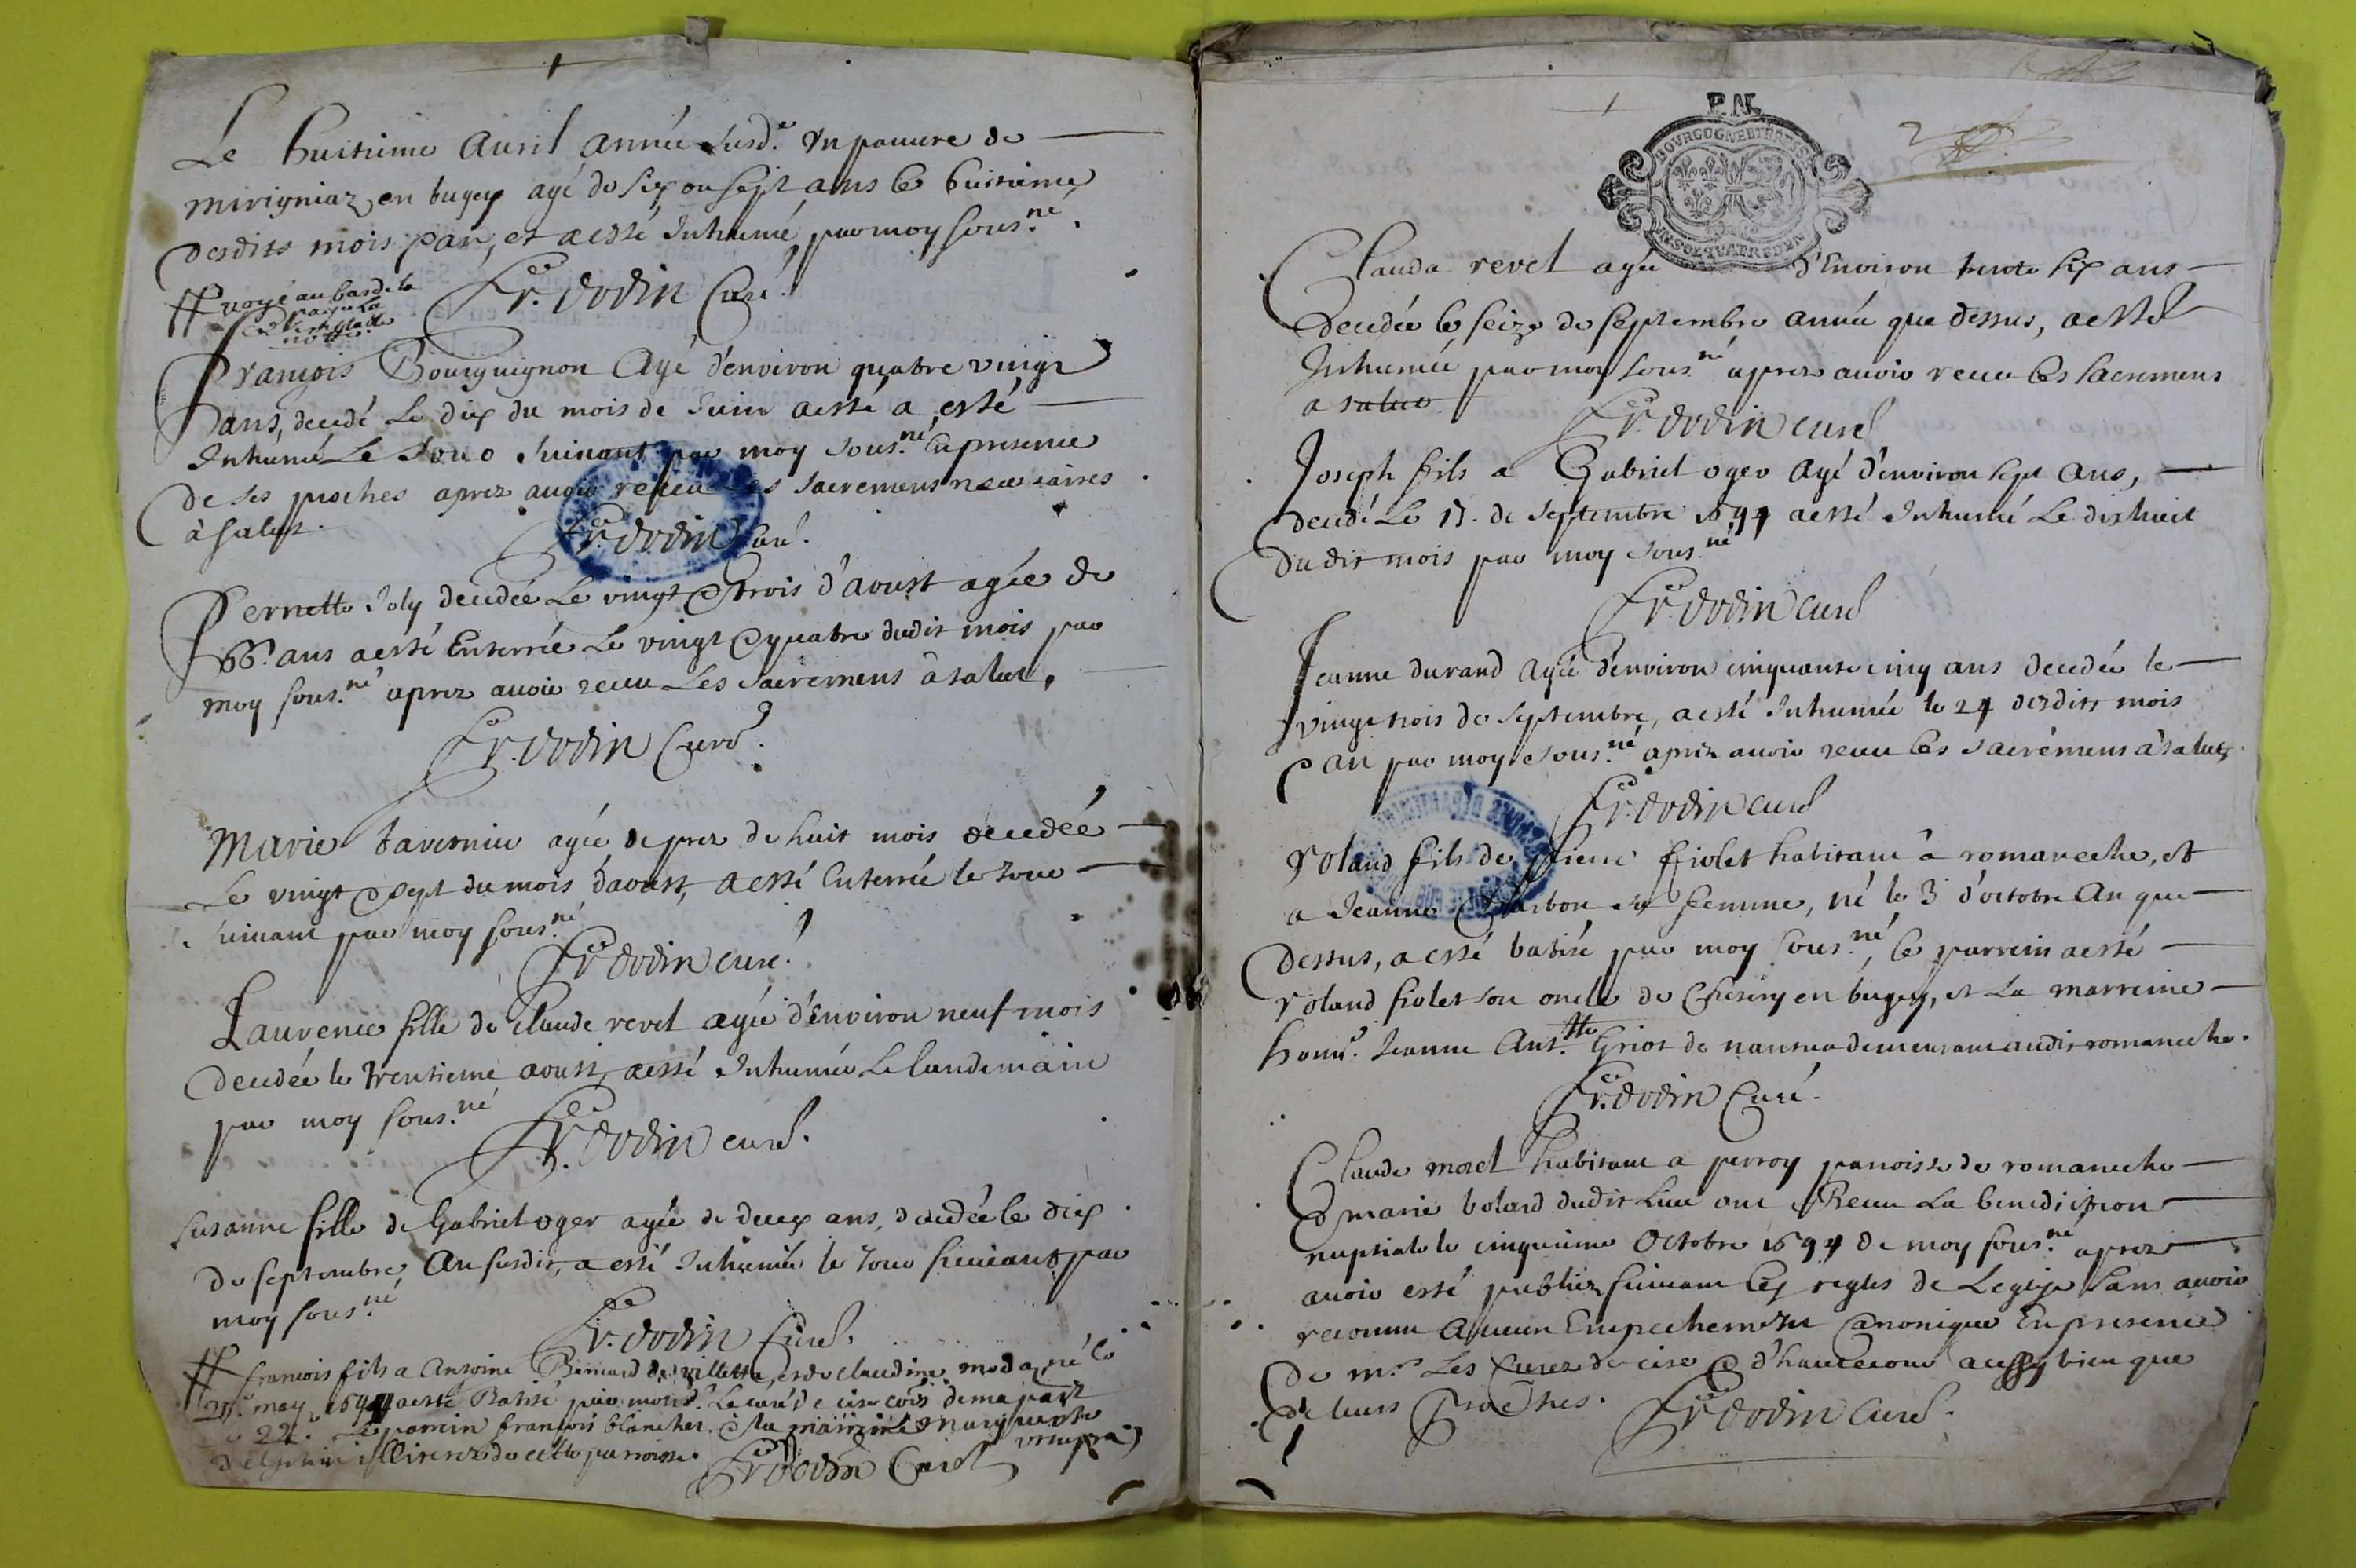 Le huitieme Auril année susd.e Vn pauure de
mirigniaz en bugey agé de six ou sept ans le huitieme
desdits mois & an, et a esté Inhumé par moy sous.né
Fr. Dodin Curé.
# voyé au bas de la
page La
nottè
François Bourguignon Agé d'environ quatre vingt
ans, decedé Le dix du mois de Juin a esté a esté
Inhumé Le Jour Suiuant par moy Sous.né En presence
de ses proches aprez auoir receu Les Sacremens necessaires
à Salut.
Fr. Dodin Curé.
Pernette Joly decedée Le vingt & trois d'aoust agée de
66. ans a esté Enterrée Le vingt & quatre dudit mois par
moy sous.né aprez auoir receu Les Sacremens à salut.
Fr. Dodin Curé.
Marie tavernier agée de prez de huit mois decedée
Le vingt & sept du mois d'aoust, a esté Enterrée le Jour
suiuant par moy sous.né
Fr. Dodin curé.
Laurence fille de Claude revel agée d'Environ neuf mois
decedée le trentieme aoust, a esté Inhumée Le landemain
par moy sous.né
Fr. Dodin curé.
Susanne fille de Gabriel oger agée de deux ans, decedée le dix
de septembre An susdit, a esté Inhumée le Jour suiuant par
moy sous.né
Fr. Dodin Curé.
# francois fils a Antoine Bernard de villette, et de claudine moda, né le
may 1694 a esté Batisé par Le curé de cise de ma part
Le parrein francois blanchet & la marreine Marguerite
de cette parroisse. Fr. Dodin Curé
P. N.
BOURGOGNE ET BRESSE
Clauda revel agée d'Environ trente six ans
decedée le seize de septembre année que dessus, a esté
Inhumée par moy sous.né aprez auoir receu les sacremens
a salut
Fr. Dodin curé
Joseph fils a Gabriel oger Agé d'environ sept ans,
decedé Le 17. de Septembre 1694 a esté Inhumé Le dixhuit
du dit mois par moy sous.né
Fr. Dodin curé
Jeanne durand Agée d'environ cinquante cinq ans decedée le
vingt trois de Septembre, a esté Inhumée le 24 desdits mois
& an par moy sous.né aprez auoir receu les sacrémens à salut,
Fr. Dodin curé
Roland fils de pierre fiolet habitant à romaneche, et
a Jeanne Charbon sa femme, né le 3 d'octobre An que
dessus, a esté batisé par moy sous.né, le parrein a esté
Roland fiolet son oncle de Chesery en bugey, et La marreine
hon.e Jeanne Ant.tte Griot de nantua demeurant audit romaneche.
Fr. Dodin Curé.
Claude morel habitant a perroy paroisse de romaneche
& marie bolard dudit Lieu ont Receu La benediction
nuptiale le cinquieme Octobre 1694 de moy sous.né aprez
auoir esté publiez suiuant les regles de Leglise sans auoir
reconnu Aucun Empechement Canonique En presence
de m.rs Les Curez de cise & d'hautecour aussy bien que
de leurs Proches. Fr. Dodin Curé.